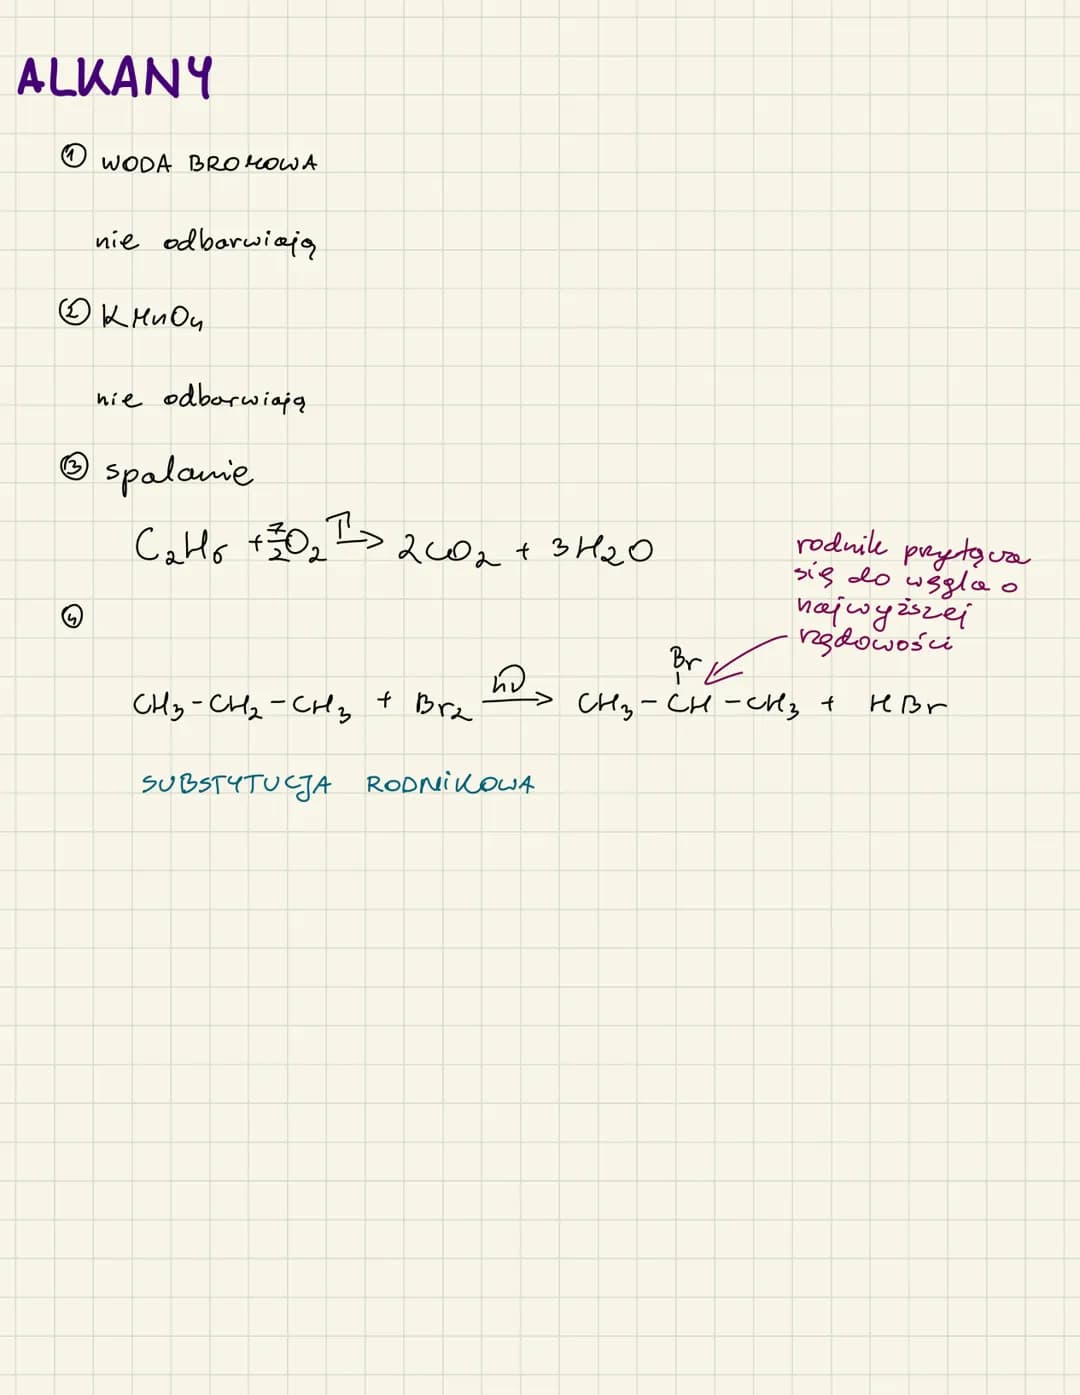 ALKANY
① WODA BROMOWA
nie odbarwiają
② KMnO₄
nie odbarwiają
③ spalanie
C₂H₆ + 7/2 O₂ T→ 2CO₂ + 3H₂O
rodnik przyłącza
się do węgla o
najwyższej
rzędowości
④
Br
CH₃-CH₂-CH₃ + Br₂ hν→ CH₃-CH-CH₃ + HBr
SUBSTYTUCJA RODNIKOWA